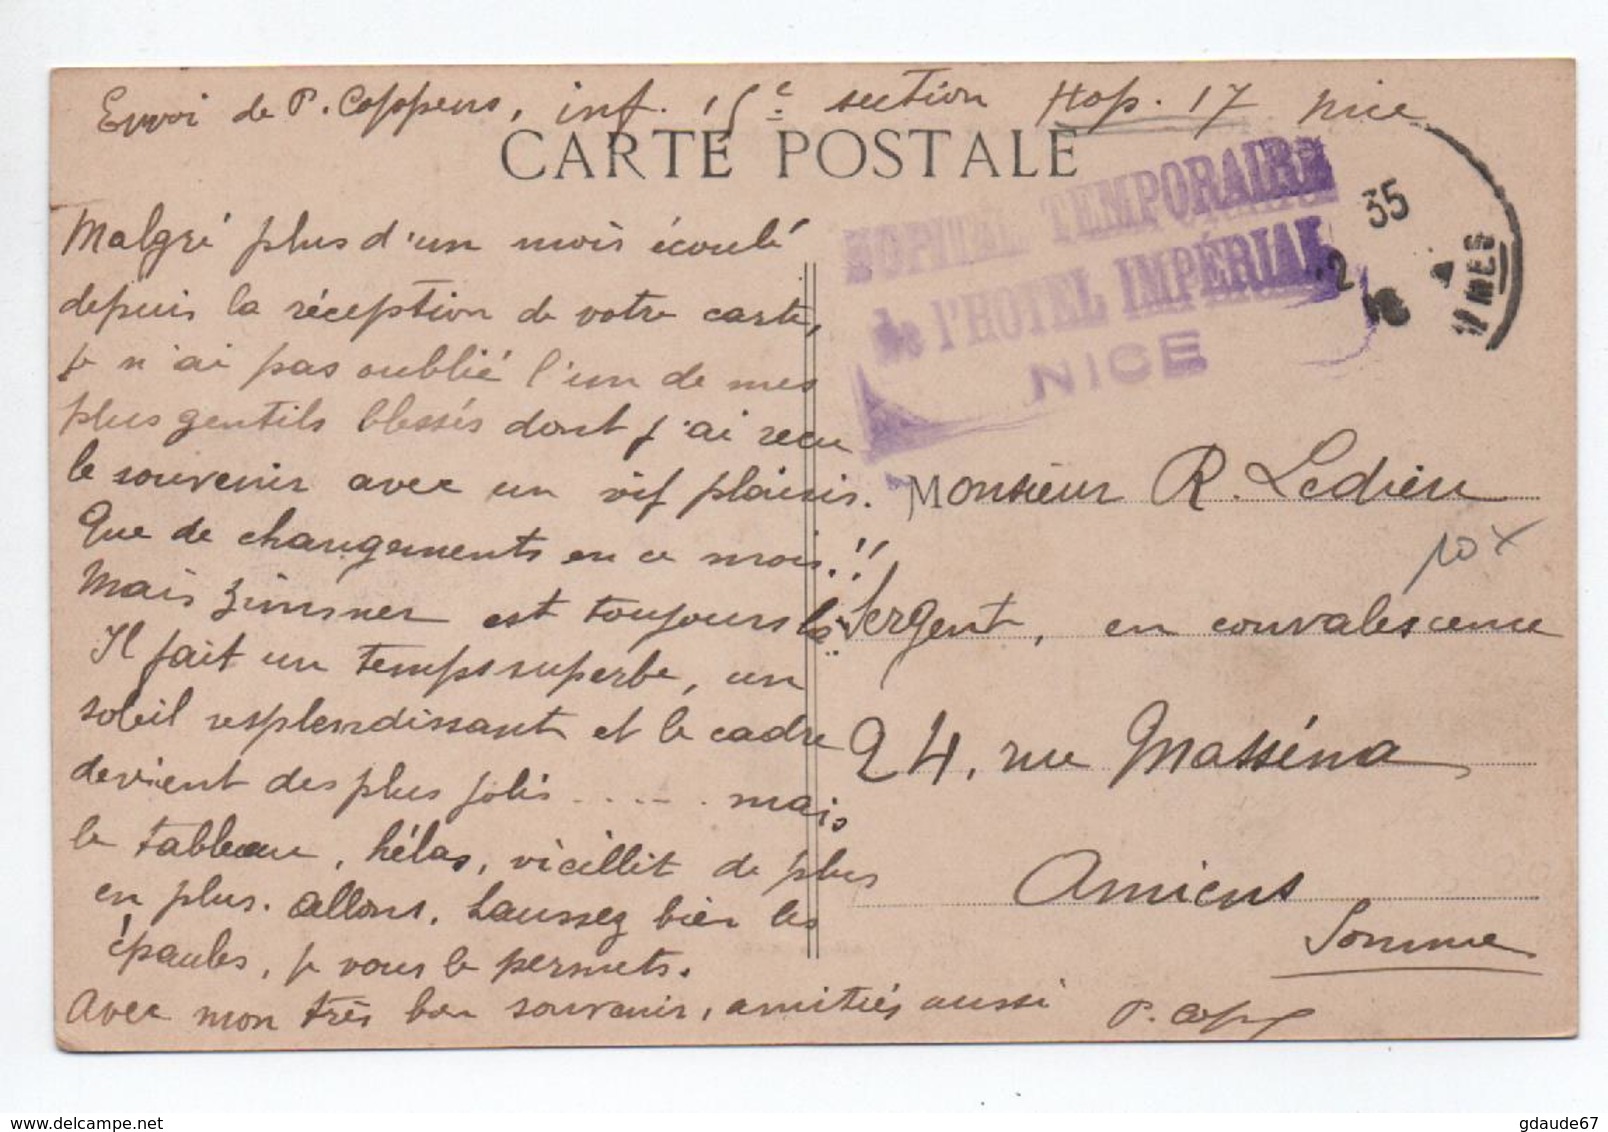 Envoi de P. Coppens, inf. 15e section Hop. 17 Nice
CARTE POSTALE
HOPITAL TEMPORAIRE
de l'HOTEL IMPÉRIAL
NICE
35
Malgré plus d'un mois écoulé
depuis la réception de votre carte,
je n'ai pas oublié l'un de mes
plus gentils blessés dont j'ai reçu
le souvenir avec un vif plaisir.
Que de changements en ce mois!!
Mais Zimmer est toujours là..
Il fait un temps superbe, un
soleil resplendissant et le cadre
devient des plus jolis ..... mais
le tableau, hélas, vieillit de plus
en plus. Allons, haussez bien les
épaules, je vous le permets.
Avec mon très bon souvenir, amitiés aussi
P. Cop
Monsieur R. Ledieu
10 x
Sergent, en convalescence
24, rue Masséna
Amiens
Somme
www.delcampe.net
gdaude67